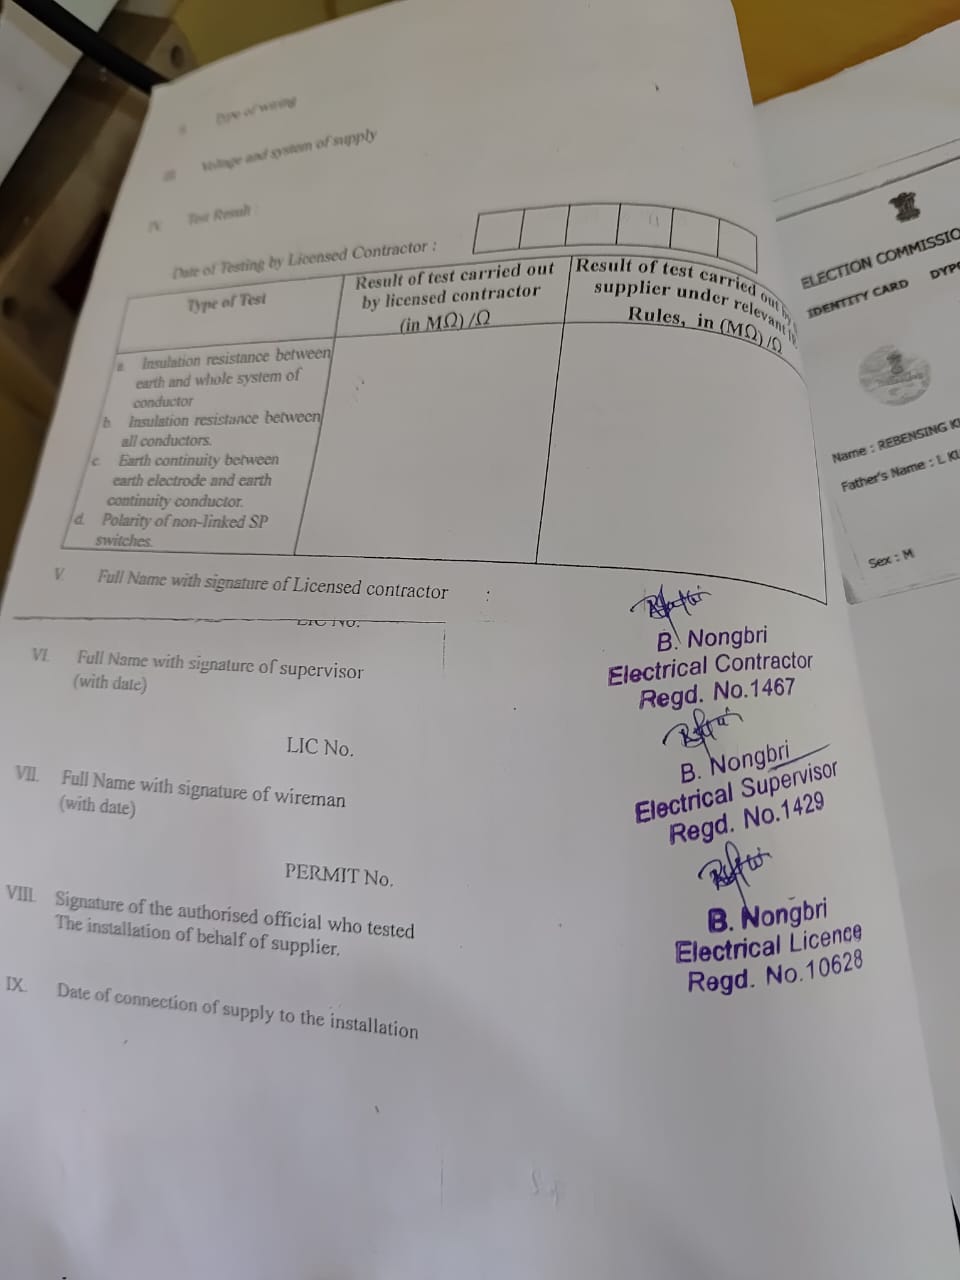 ii Type of wiring
iii Voltage and system of supply
IV. Test Result :
Date of Testing by Licensed Contractor :
Type of Test
Result of test carried out
by licensed contractor
(in MΩ) /Ω
Result of test carried out by
supplier under relevant
Rules, in (MΩ) /Ω
a. Insulation resistance between
earth and whole system of
conductor
b. Insulation resistance between
all conductors.
c. Earth continuity between
earth electrode and earth
continuity conductor.
d. Polarity of non-linked SP
switches.
V. Full Name with signature of Licensed contractor :
LIC NO.
B. Nongbri
Electrical Contractor
Regd. No.1467
VI. Full Name with signature of supervisor
(with date)
LIC No.
B. Nongbri
Electrical Supervisor
Regd. No.1429
VII. Full Name with signature of wireman
(with date)
PERMIT No.
B. Nongbri
Electrical Licence
Regd. No.10628
VIII. Signature of the authorised official who tested
The installation of behalf of supplier.
IX. Date of connection of supply to the installation
ELECTION COMMISSIO
IDENTITY CARD DYP
Name : REBENSING
Father's Name : L
Sex : M